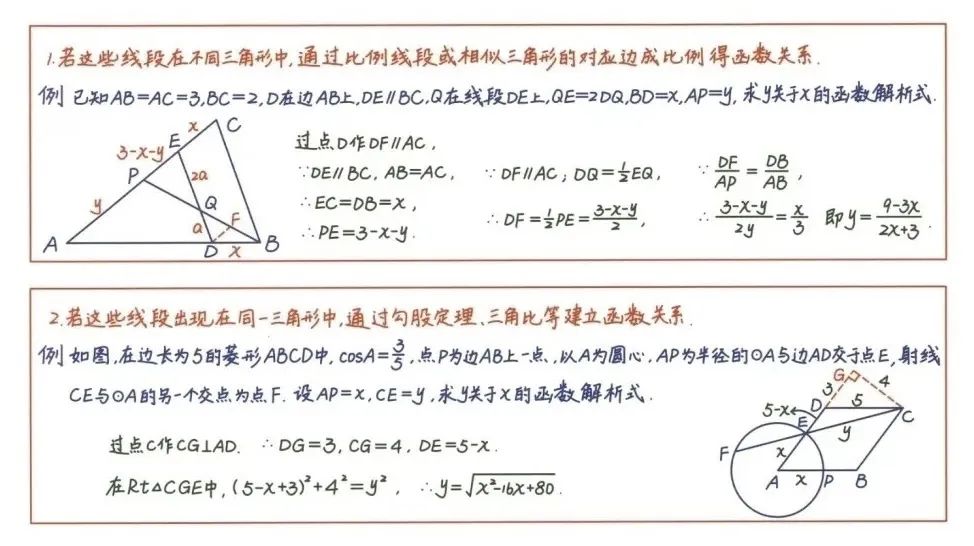 1.若这些线段在不同三角形中,通过比例线段或相似三角形的对应边成比例得函数关系.
例 已知AB=AC=3,BC=2,D在边AB上,DE∥BC,Q在线段DE上,QE=2DQ,BD=x,AP=y,求y关于x的函数解析式.
x C
E
3-x-y
P 2a
y Q
a F
A D x B
过点D作DF∥AC,
∵DE∥BC, AB=AC,
∴EC=DB=x,
∴PE=3-x-y.
∵DF∥AC; DQ=½EQ,
∴DF=½PE=(3-x-y)/2,
∵DF/AP=DB/AB,
∴(3-x-y)/2y=x/3 即y=(9-3x)/(2x+3).
2.若这些线段出现在同一三角形中,通过勾股定理、三角比等建立函数关系.
例 如图,在边长为5的菱形ABCD中,cosA=3/5,点P为边AB上一点,以A为圆心,AP为半径的⊙A与边AD交于点E,射线
CE与⊙A的另一个交点为点F.设AP=x,CE=y,求y关于x的函数解析式.
过点C作CG⊥AD. ∴DG=3,CG=4,DE=5-x.
在Rt△CGE中,(5-x+3)²+4²=y², ∴y=√(x²-16x+80).
G
3 4
5-x D 5
E C
y
F x
A x P B